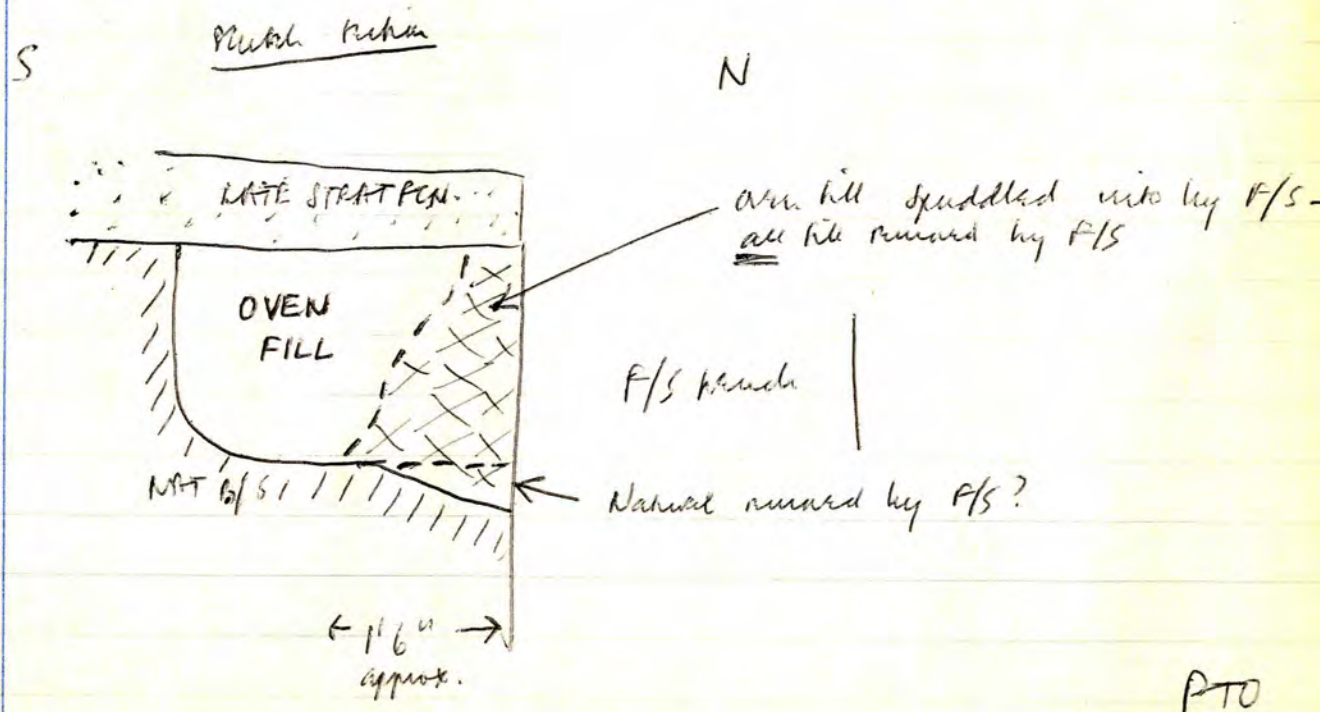 Sketch section
S
N
LATE STRATFCN.
oven fill spuddled into by F/S -
all fill removed by F/S
OVEN
FILL
F/S trench
NAT B/S
Natural removed by F/S?
← 1' 6" →
approx.
PTO